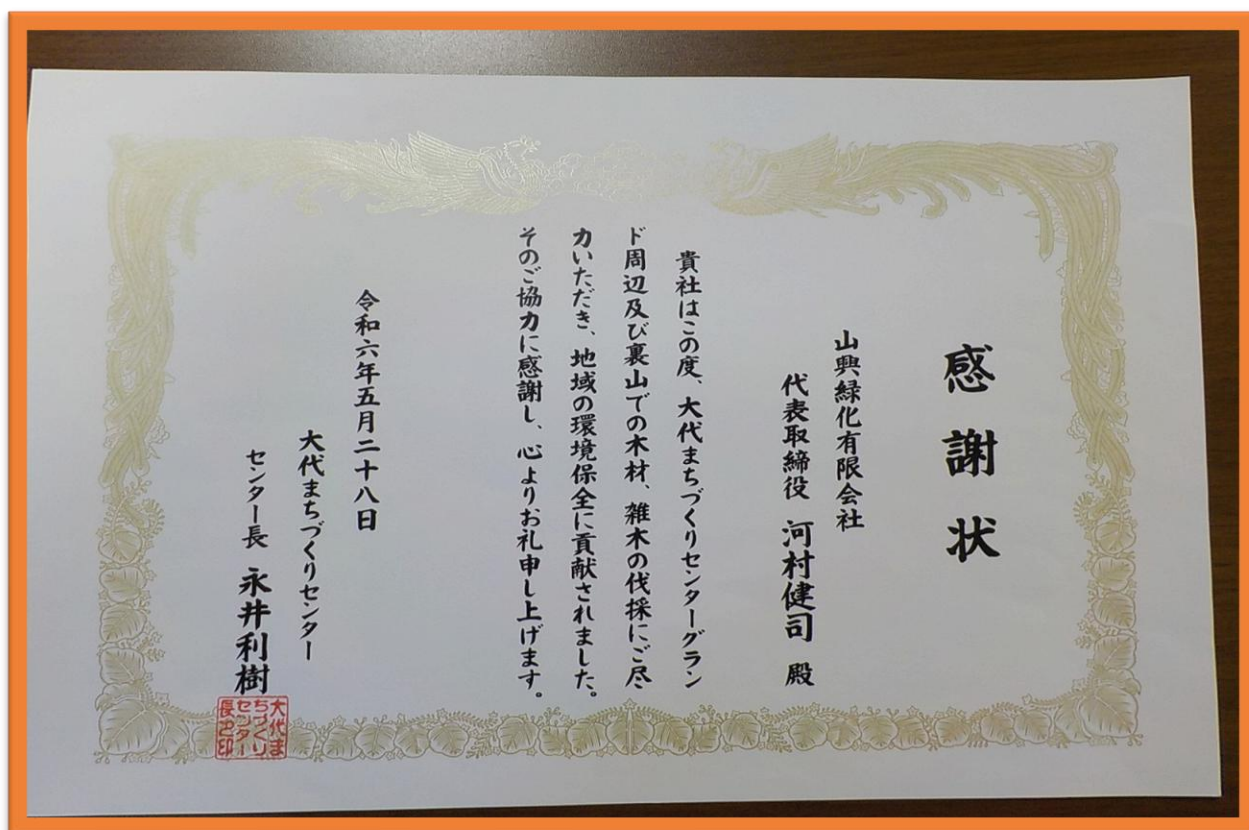 感謝状
山興緑化有限会社
代表取締役 河村健司 殿
貴社はこの度、大代まちづくりセンターグラン
ド周辺及び裏山での木材、雑木の伐採にご尽
力いただき、地域の環境保全に貢献されました。
そのご協力に感謝し、心よりお礼申し上げます。
令和六年五月二十八日
大代まちづくりセンター
センター長 永井利樹
大代ま
ちづくり
センター
長之印